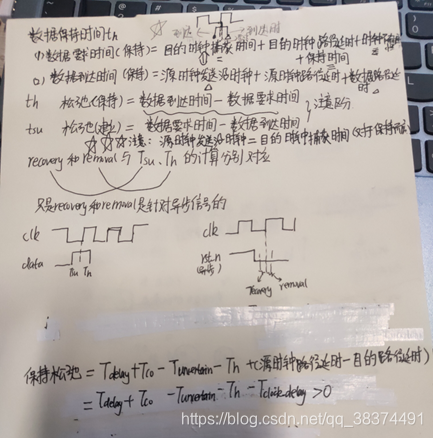 数据保持时间th
(1)数据要求时间(保持)=目的时钟捕获时间+目的时钟路径延时+时钟不确定
+保持时间
(2)数据到达时间(保持)=源时钟发送沿时钟+源时钟路径延时+数据路径延时
th 松弛(保持)=数据到达时间-数据要求时间
注意区分
tsu 松弛(建立)=数据要求时间-数据到达时间
☆☆☆注意:源时钟发送沿时钟=目的时钟捕获时间(对于保持
recovery和removal与Tsu.Th的计算分别对应
只是recovery和removal是针对异步信号的
clk
clk
data
Tsu Th
rst_n
recovery
removal
保持松弛=Tdelay+Tco-Tuncertain-Th+(源时钟路径延时-目的路径延时)
=Tdelay+Tco-Tuncertain-Th-Tclock delay>0
https://blog.csdn.net/qq_38374491